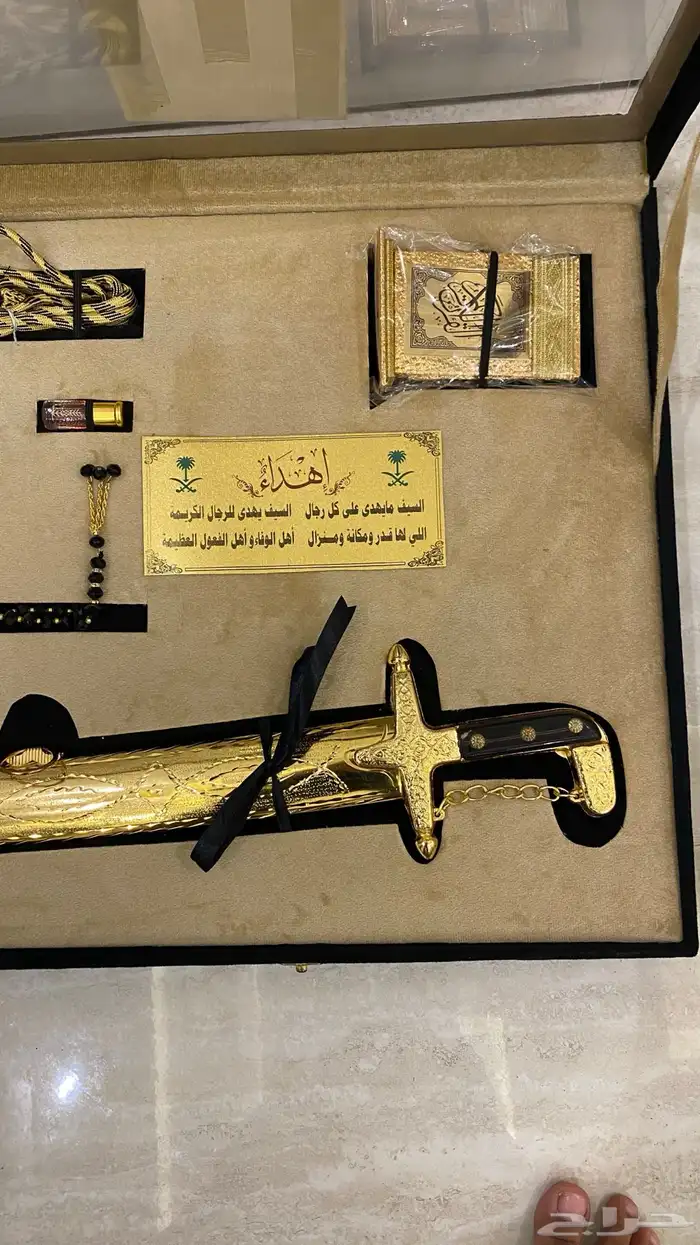 القرآن الكريم
إهداء
السيف مايهدى على كل رجال السيف يهدى للرجال الكريمة
اللي لها قدر ومكانة ومنزال أهل الوفاء و أهل الفعول العظيمة
حراج